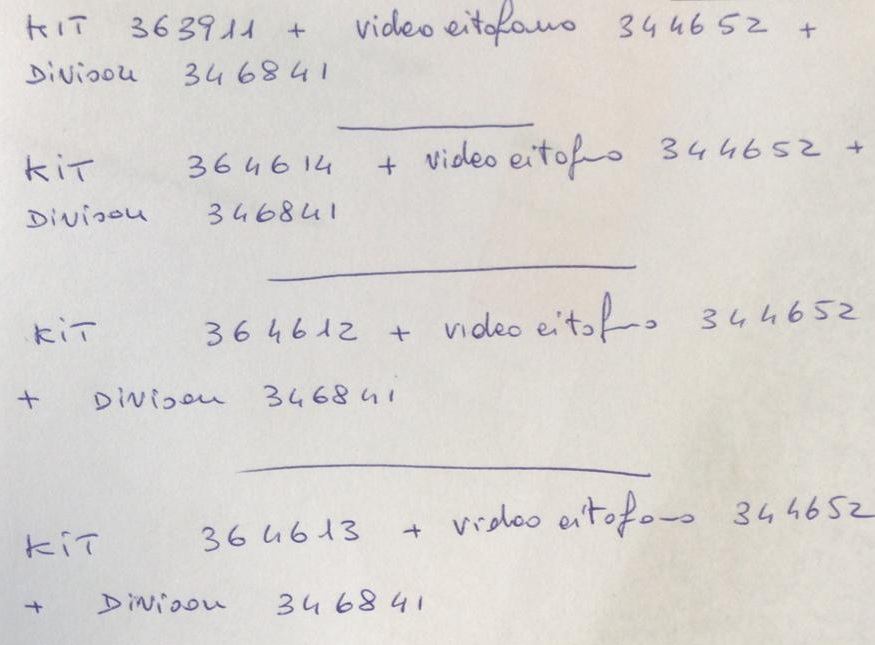 KIT 363911 + videocitofono 344652 +
Divisori 346841
KiT 364614 + videocitofono 344652 +
Divisori 346841
KiT 364612 + videocitofono 344652
+ Divisori 346841
KiT 364613 + videocitofono 344652
+ Divisori 346841